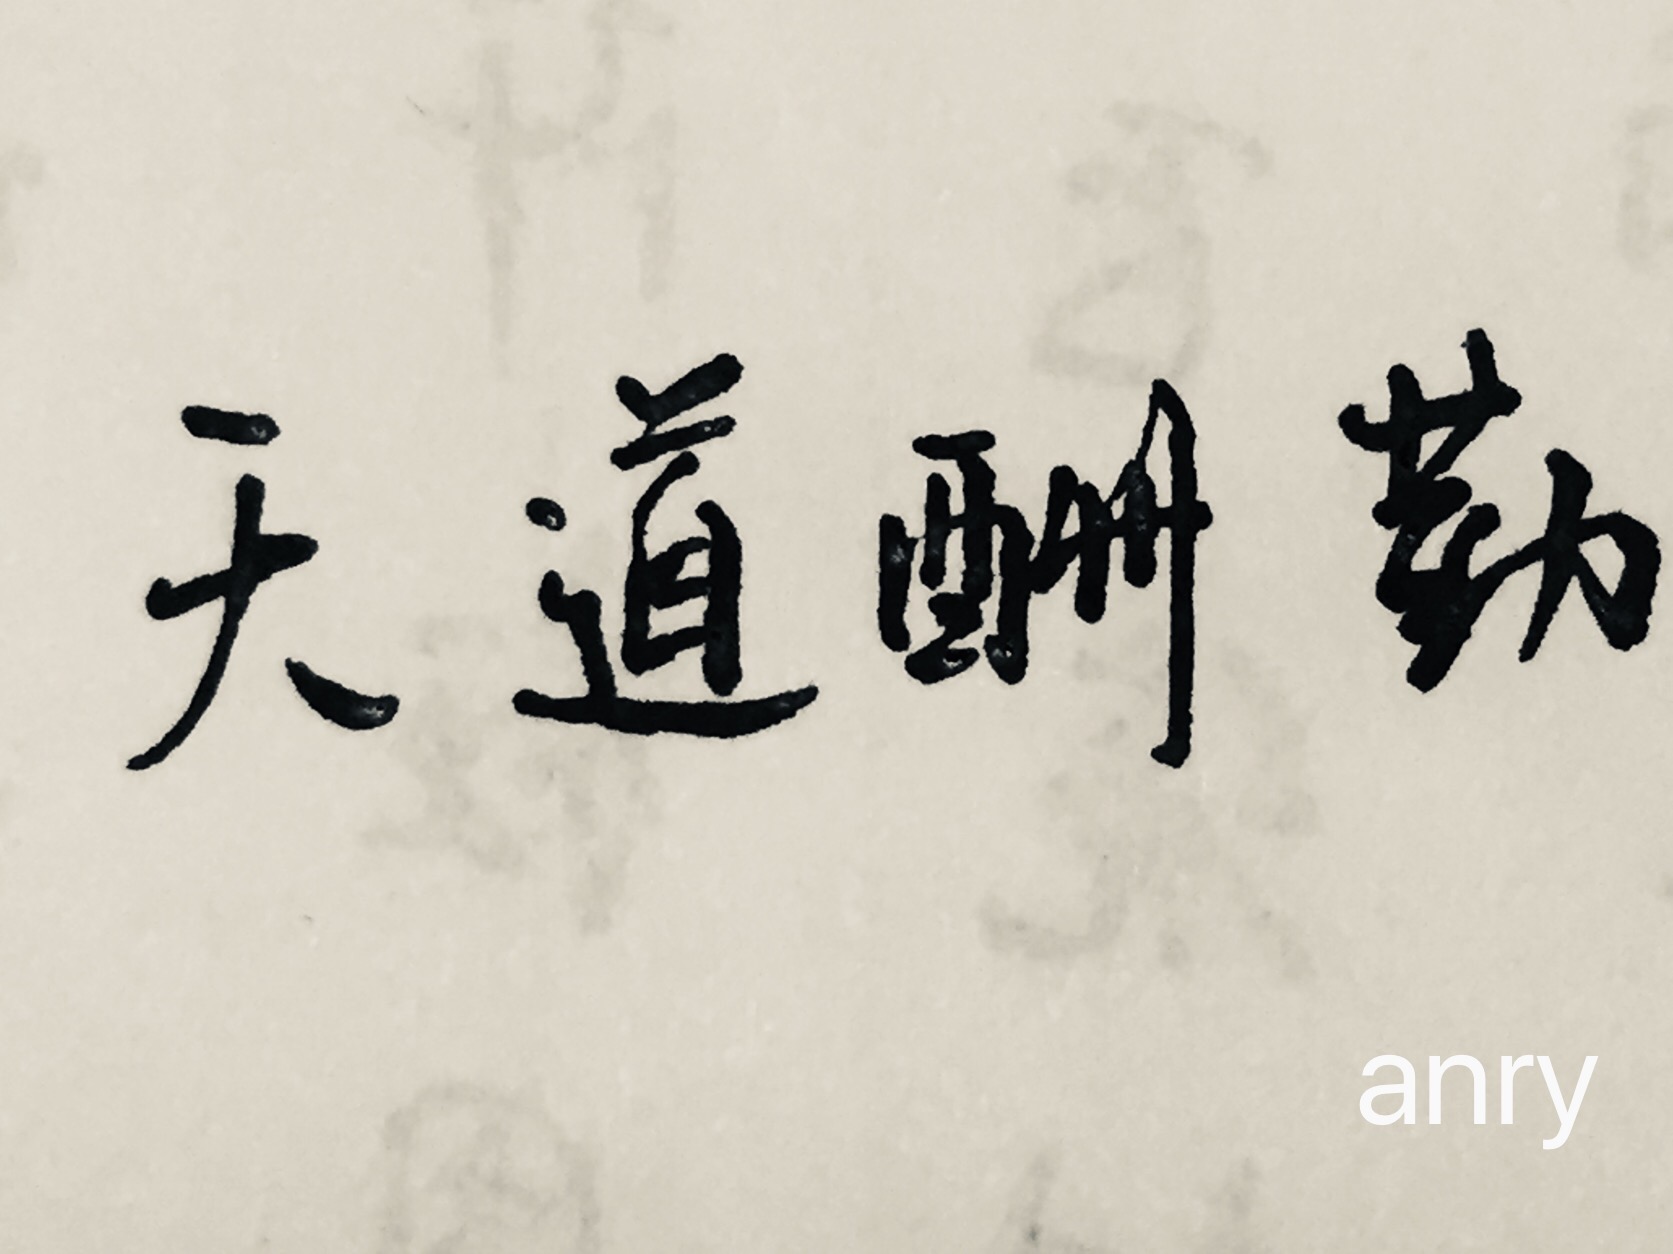 天道酬勤
anry